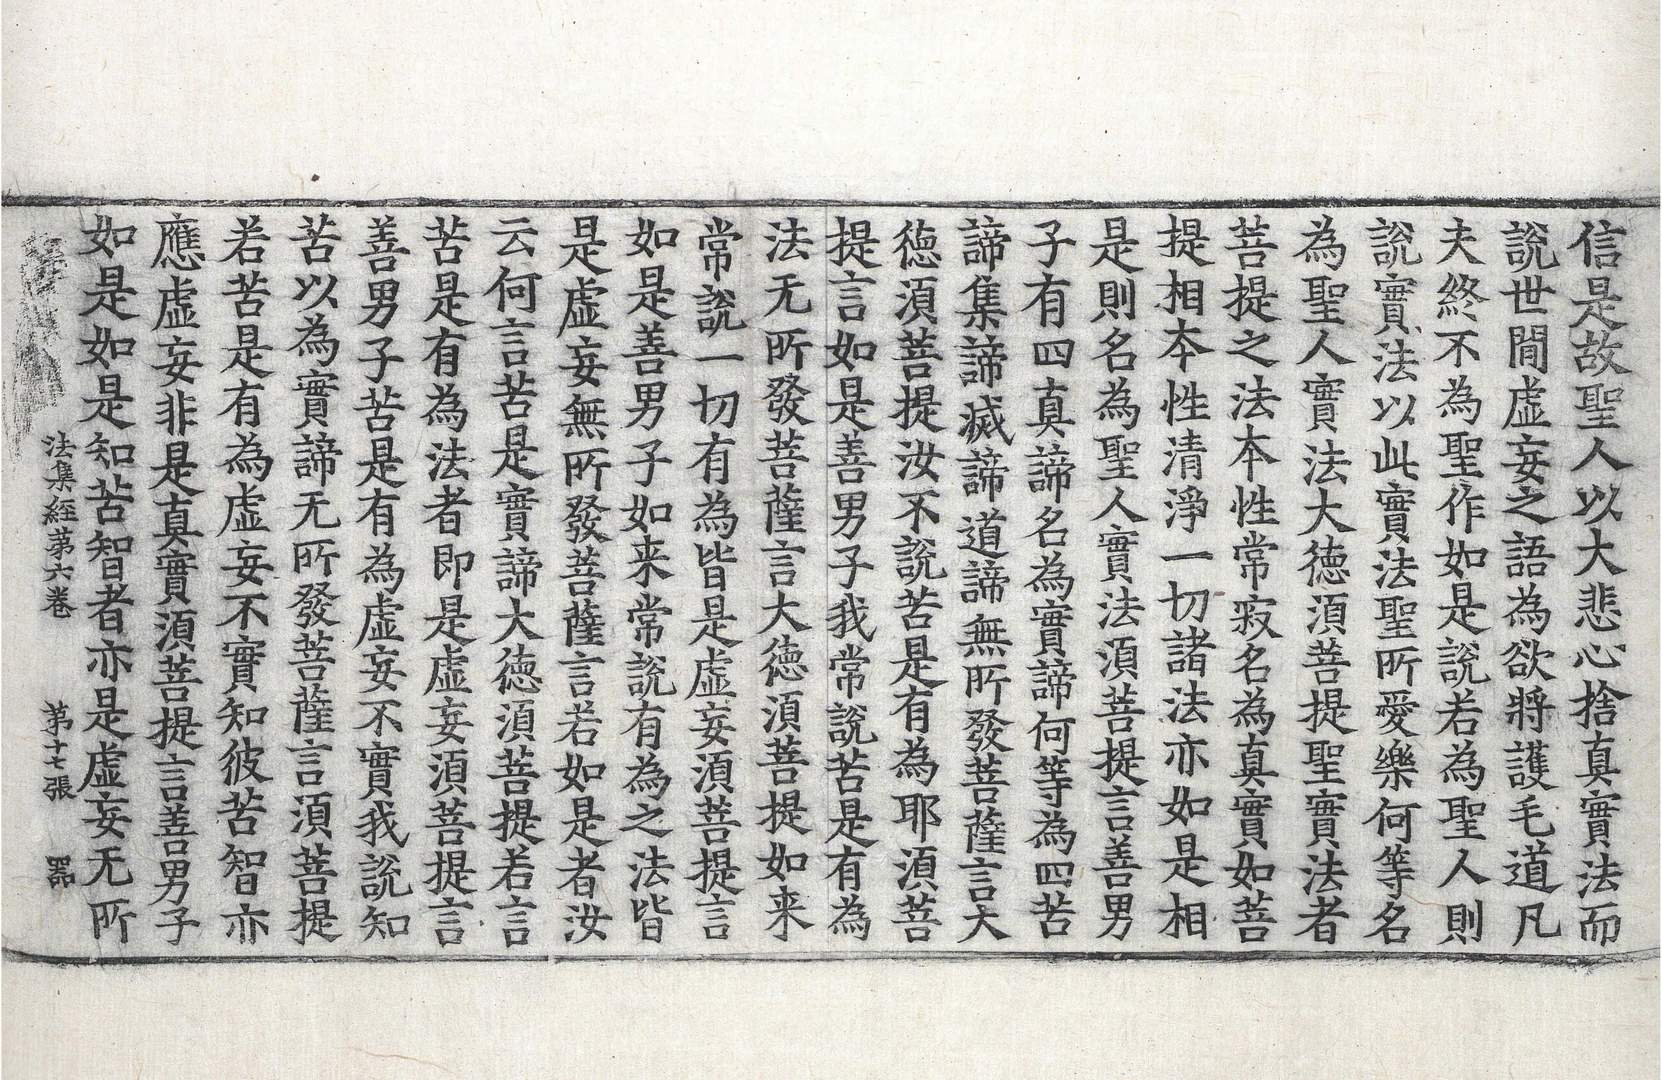 信是故聖人以大悲心捨真實法而
說世間虛妄之語為欲將護毛道凡
夫終不為聖作如是說若為聖人則
說實法以此實法聖所愛樂何等名
為聖人實法大德須菩提聖實法者
菩提之法本性常寂名為真實如菩
提相本性清淨一切諸法亦如是相
是則名為聖人實法須菩提言善男
子有四真諦名為實諦何等為四苦
諦集諦滅諦道諦無所發菩薩言大
德須菩提汝不說苦是有為耶須菩
提言如是善男子我常說苦是有為
法无所發菩薩言大德須菩提如来
常說一切有為皆是虛妄須菩提言
如是善男子如来常說有為之法皆
是虛妄無所發菩薩言若如是者汝
云何言苦是實諦大德須菩提若言
苦是有為法者即是虛妄須菩提言
善男子苦是有為虛妄不實我說知
苦以為實諦无所發菩薩言須菩提
若苦是有為虛妄不實知彼苦智亦
應虛妄非是真實須菩提言善男子
如是如是知苦智者亦是虛妄无所
法集經第六卷　第十七張　器